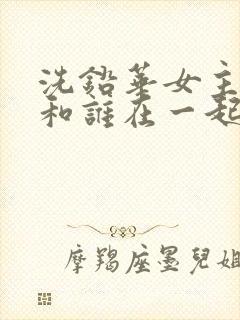 洗鉛華女主
和誰在一起
摩羯座墨兒姐